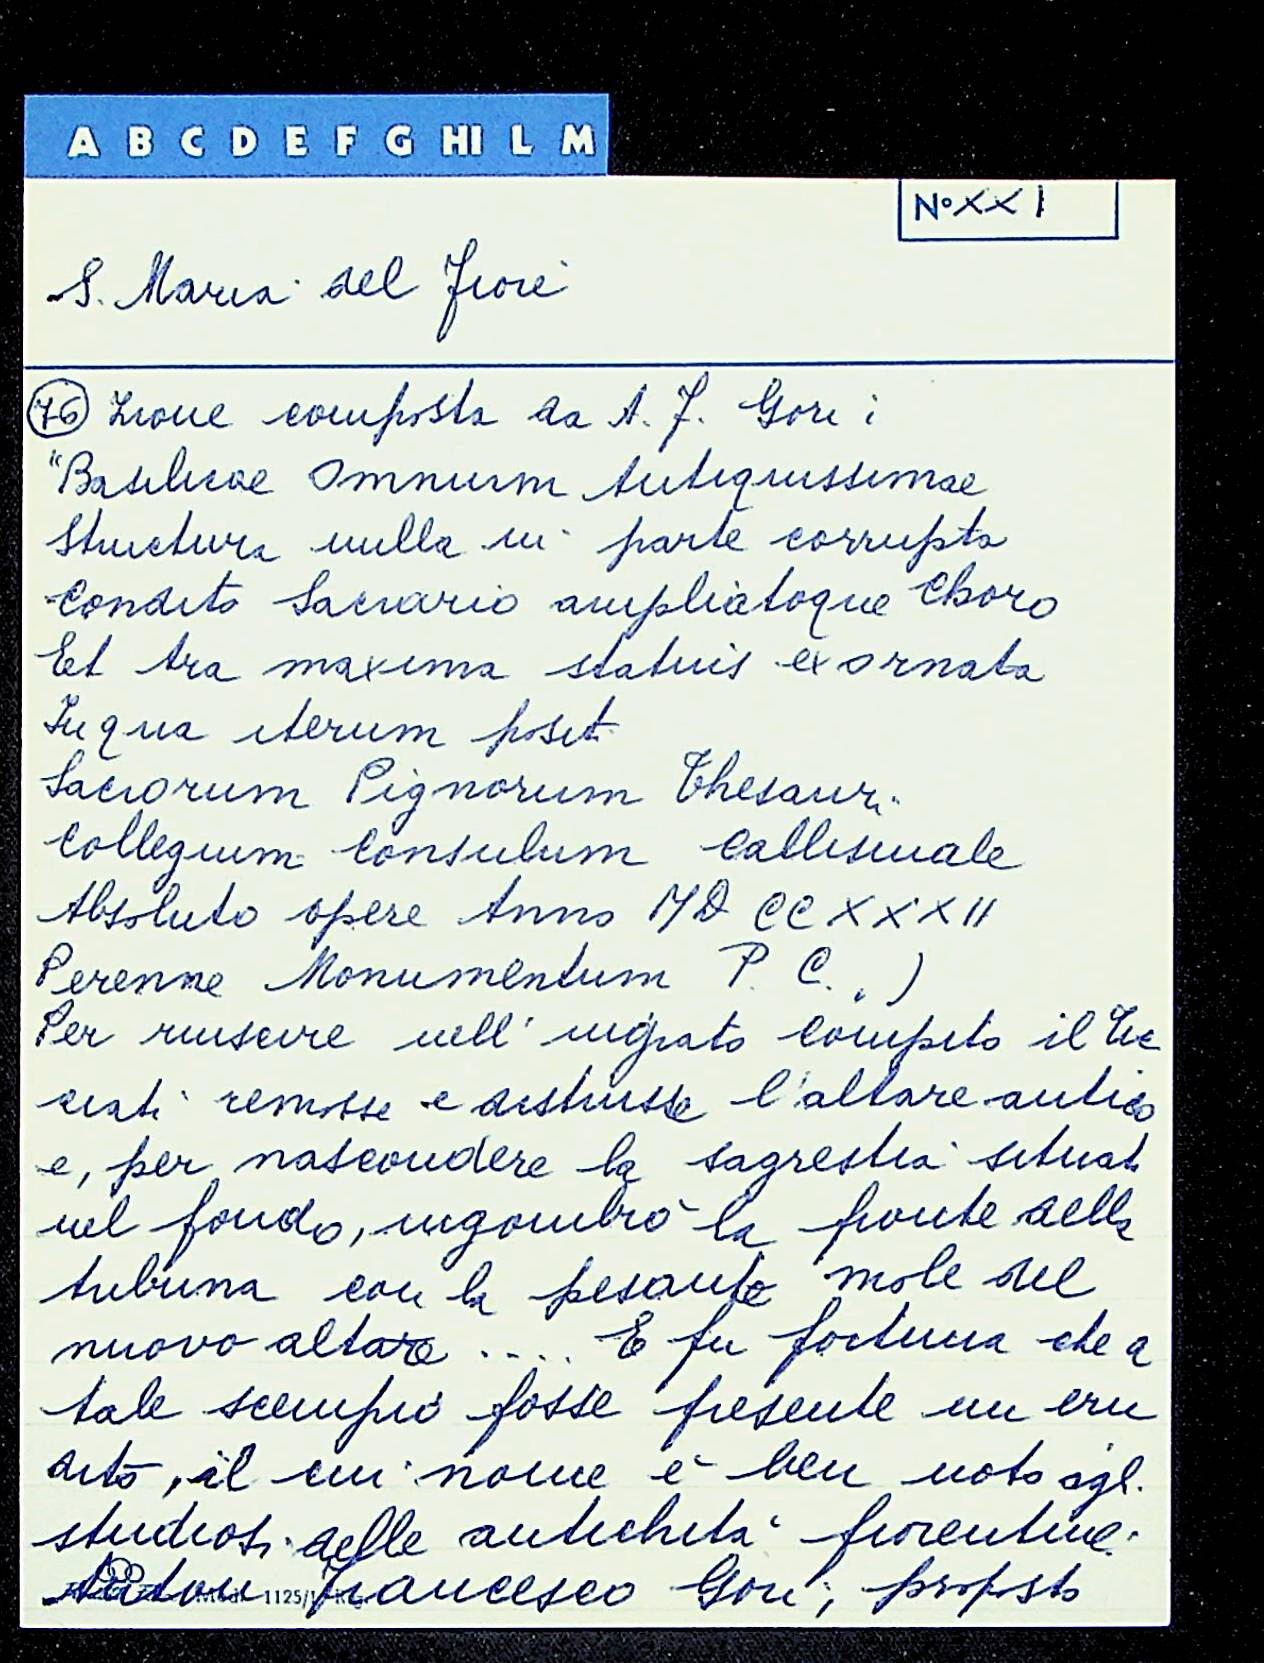 A B C D E F G HI L M
N° XXI
S. Maria del Fiore
76 zione composta da A. F. Gori :
"Basilicae Omnium Antiquissimae
Structura nulla in parte corrupta
Condito Sacrario ampliatoque Choro
Et Ara maxima statuis exornata
In qua iterum posit
Sacrorum Pignorum Thesauri
Collegium Consulum Callismale
Absoluto opere Anno MDCCXXXII
Perenne Monumentum P. C. )
Per riuscire nell'ingrato compito il Tic
ciati remosse e distrusse l'altare antico
e, per nascondere la sagrestia situat
nel fondo, ingombrò la fronte della
tribuna con la pesante mole del
nuovo altare .... E fu fortuna che a
tale scempio fosse presente un eru
dito, il cui nome è ben noto agli
studiosi delle antichità fiorentine:
Anton Francesco Gori, proposto